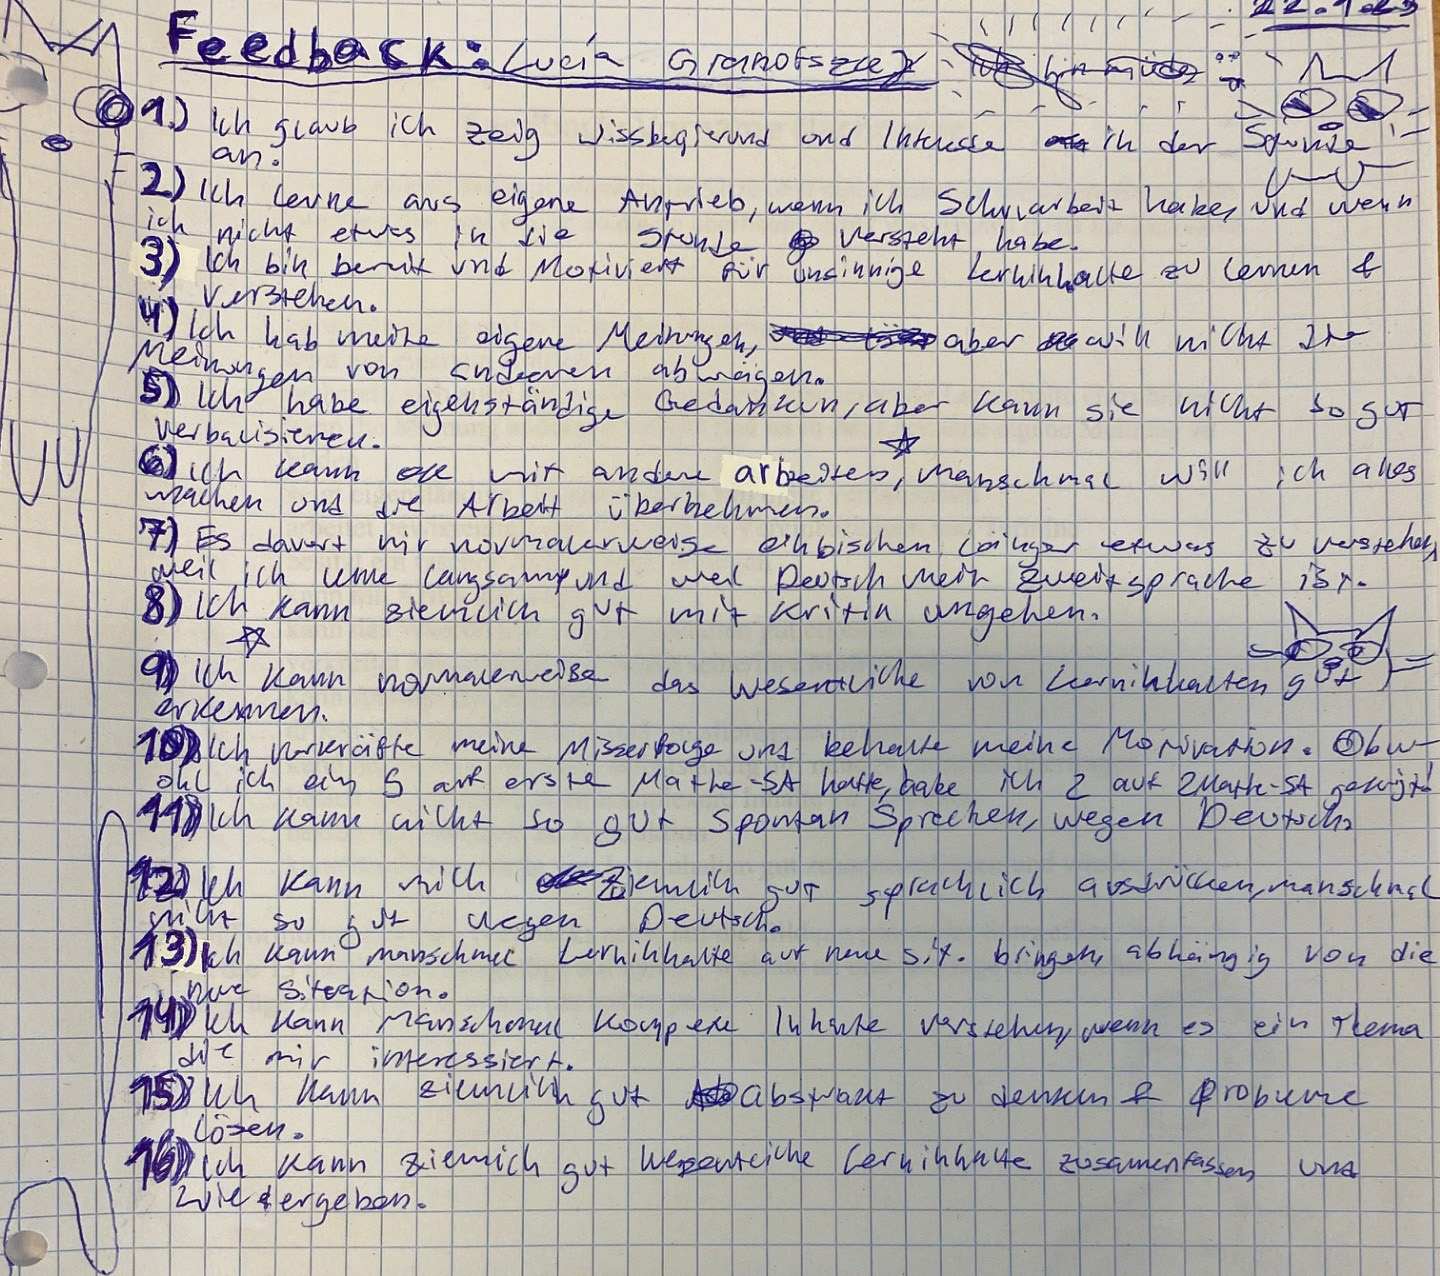 22.1.23
Feedback: Lucía
1.) Ich glaub ich zeig wissbegierund und Intresse in der Stunde
an.
2.) Ich lerne aus eigene Antrieb, wenn ich Schularbeit habe, und wenn
ich nicht etwas in die Stunde versteht habe.
3) Ich bin bereit und Motiviert für unsinnige Lerninhalte zu lernen &
verstehen.
4) Ich hab meine eigene Meinungen, aber will nicht die
Meinungen von anderen abwägen.
5) Ich habe eigenständige Gedanken, aber kann sie nicht so gut
verbalisieren.
6) Ich kann mit andere arbeiten, manschmal will ich alles
machen und die Arbeit übernehmen.
7) Es dauert mir normalerweise einbischen länger etwas zu verstehen,
weil ich lerne langsam und weil Deutsch mein Zweitsprache ist.
8) Ich kann ziemlich gut mit Kritik umgehen.
9) Ich kann normalerweiße das Wesentliche von Lerninhalten gut
erkennen.
10) Ich verkräfte meine Misserfolge und behalte meine Motivation. Obw-
ohl ich ein 5 auf erste Mathe-SA hatte, habe ich 2 auf 2Mathe-SA gekrigt!
11) Ich kann nicht so gut Spontan Sprechen, wegen Deutsch
12) Ich kann mich ziemlich gut sprachlich ausdrücken, manschmal
nicht so gut wegen Deutsch.
13) Ich kann manschmal Lerninhalte auf neue sit. bringen, abhängig von die
neue Situation.
14) Ich kann Manschmal Komplexe Inhalte verstehen, wenn es ein Thema
die mir interessiert.
15) Ich kann ziemlich gut abstrakt zu denken & Probleme
lösen.
16) Ich kann ziemlich gut Wesentliche Lerninhalte zusamenfassen und
wiedergeben.